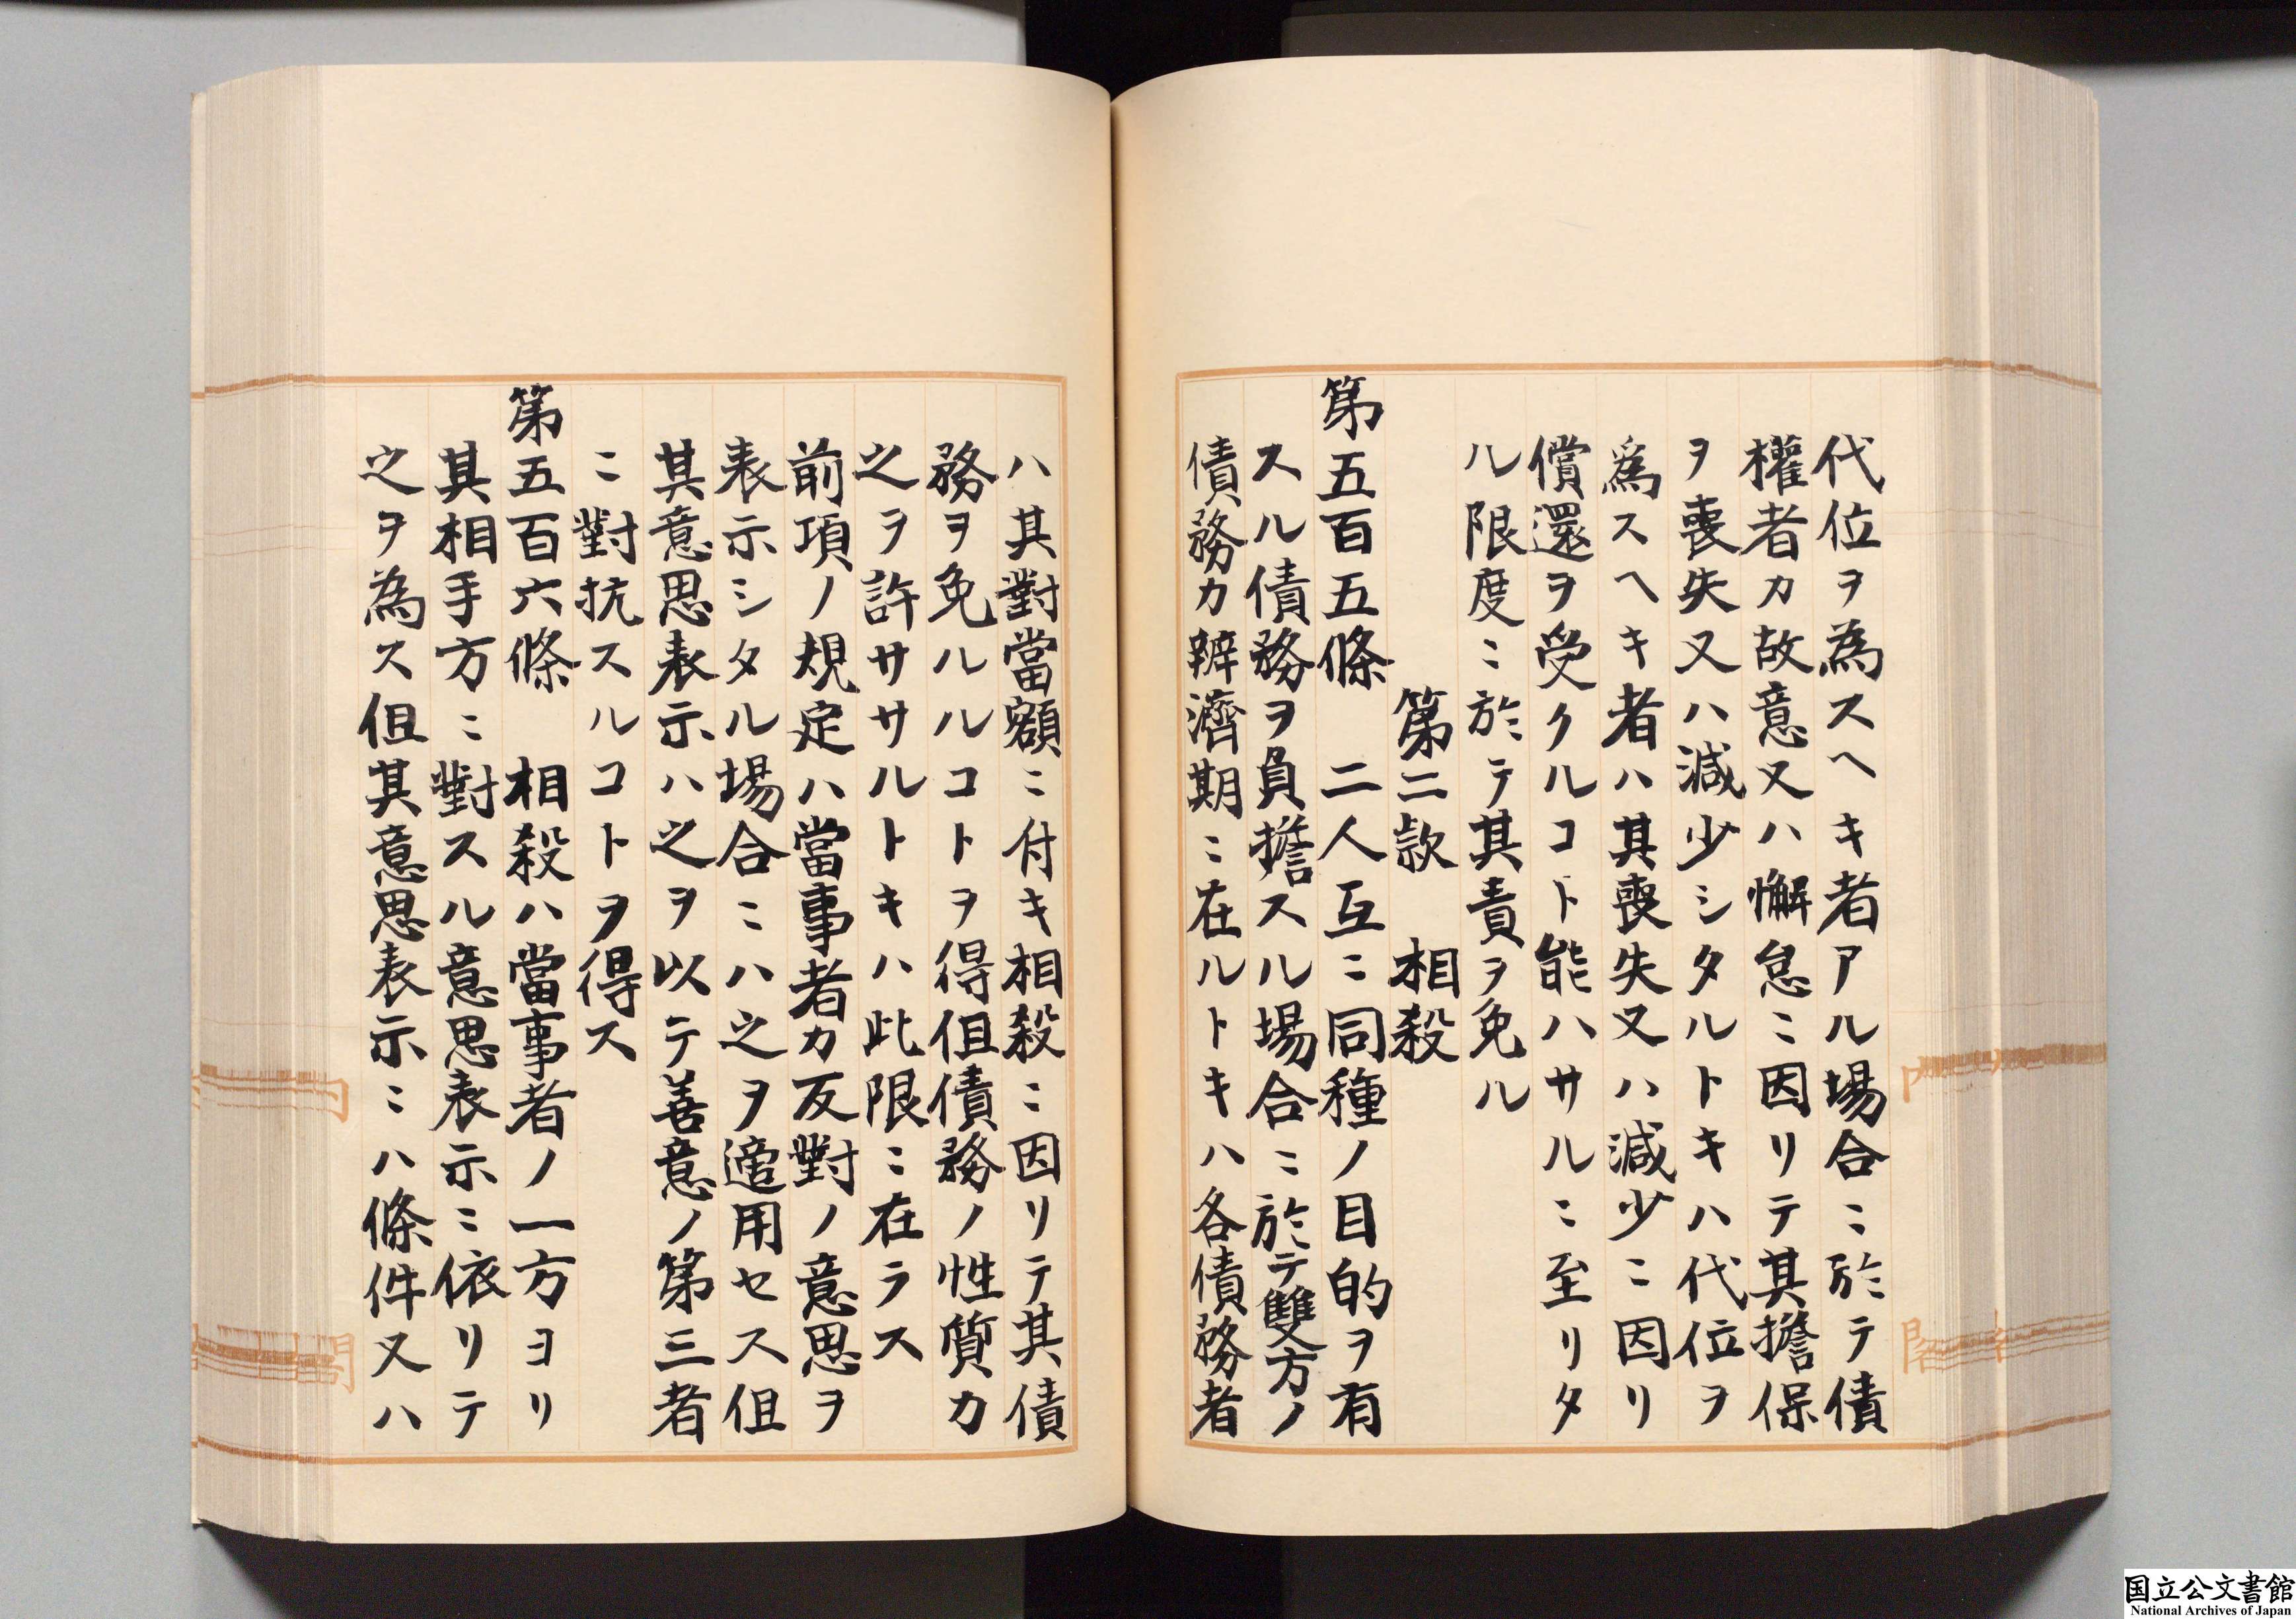 代位ヲ為スヘキ者アル場合ニ於テ債
權者カ故意又ハ懈怠ニ因リテ其擔保
ヲ喪失又ハ減少シタルトキハ代位ヲ
爲スヘキ者ハ其喪失又ハ減少ニ因リ
償還ヲ受クルコト能ハサルニ至リタ
ル限度ニ於テ其責ヲ免ル
第二款　相殺
第五百五條　二人互ニ同種ノ目的ヲ有
スル債務ヲ負擔スル場合ニ於テ雙方ノ
債務カ辨濟期ニ在ルトキハ各債務者
ハ其對當額ニ付キ相殺ニ因リテ其債
務ヲ免ルルコトヲ得但債務ノ性質カ
之ヲ許ササルトキハ此限ニ在ラス
前項ノ規定ハ當事者カ反對ノ意思ヲ
表示シタル場合ニハ之ヲ適用セス但
其意思表示ハ之ヲ以テ善意ノ第三者
ニ對抗スルコトヲ得ス
第五百六條　相殺ハ當事者ノ一方ヨリ
其相手方ニ對スル意思表示ニ依リテ
之ヲ為ス但其意思表示ニハ條件又ハ
国立公文書館
National Archives of Japan